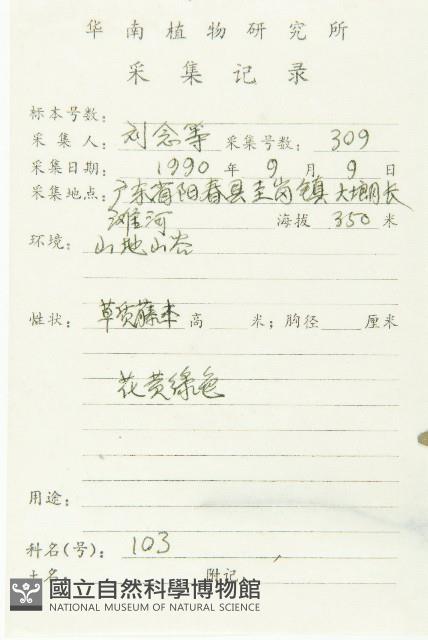 华南植物研究所
采集记录
标本号数:
采集人: 刘念等 采集号数: 309
采集日期: 1990 年 9 月 9 日
采集地点: 广东省阳春县圭岗镇大塱长
滩河 海拔 350 米
环境: 山地山谷
性状: 草质藤本 高 米; 胸径 厘米
花黄绿色
用途:
科名(号): 103
土名 附记
國立自然科學博物館
NATIONAL MUSEUM OF NATURAL SCIENCE